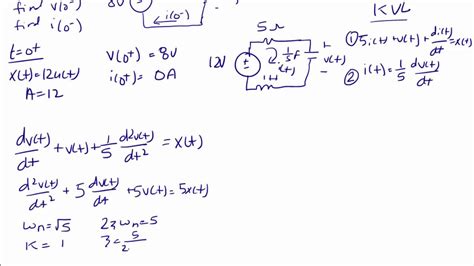 find v(0⁻)
find i(0⁻)
8V
i(0⁻)
t=0+
x(t)=12u(t)
A=12
V(0⁺)=8V
i(0⁺)=0A
12V
5Ω
1/5 f
i(t)
1H
+
v(t)
-
KVL
① 5i(t)+v(t)+di(t)/dt=x(t)
② i(t)=1/5 dv(t)/dt
dv(t)/dt+v(t)+1/5 d²v(t)/dt²=x(t)
d²v(t)/dt²+5 dv(t)/dt+5v(t)=5x(t)
ωn=√5 2ζωn=5
K=1 ζ=5/2